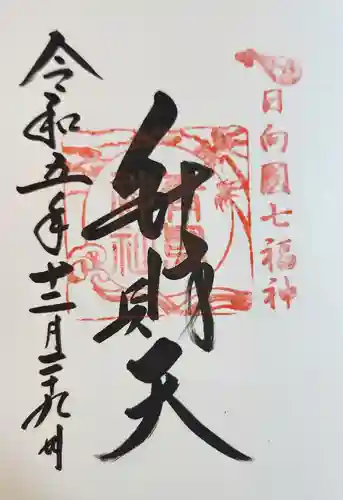 日向國七福神
弁財天
令和五年十二月二十九日